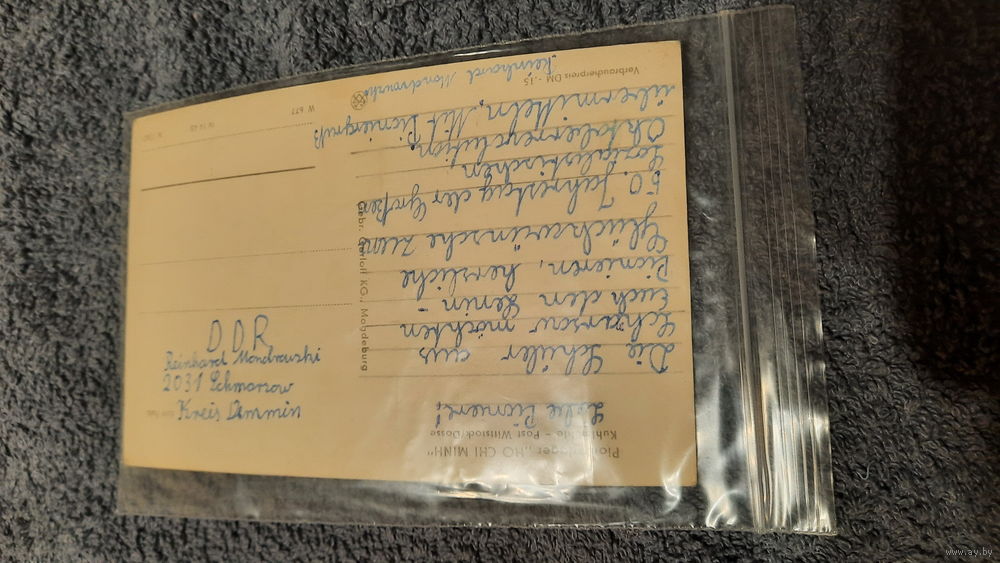 Pionierlager „HO CHI MINH“
Kuhlmühle - Post Wittstock/Dosse
Liebe Pioniere!
Die Schüler aus
Schmarsow möchten
Euch den Lenin-
Pionieren, herzliche
Glückwünsche zum
50. Jahrestag der Großen
Sozialistischen
Oktoberrevolution
übermitteln. Mit Pioniergruß
Reinhard Mondrowski
Verbraucherpreis DM -,15
Gebr. Garloff KG, Magdeburg
W 677
D D R
Reinhard Mondrowski
2031 Schmarzow
Kreis Demmin
www.ay.by